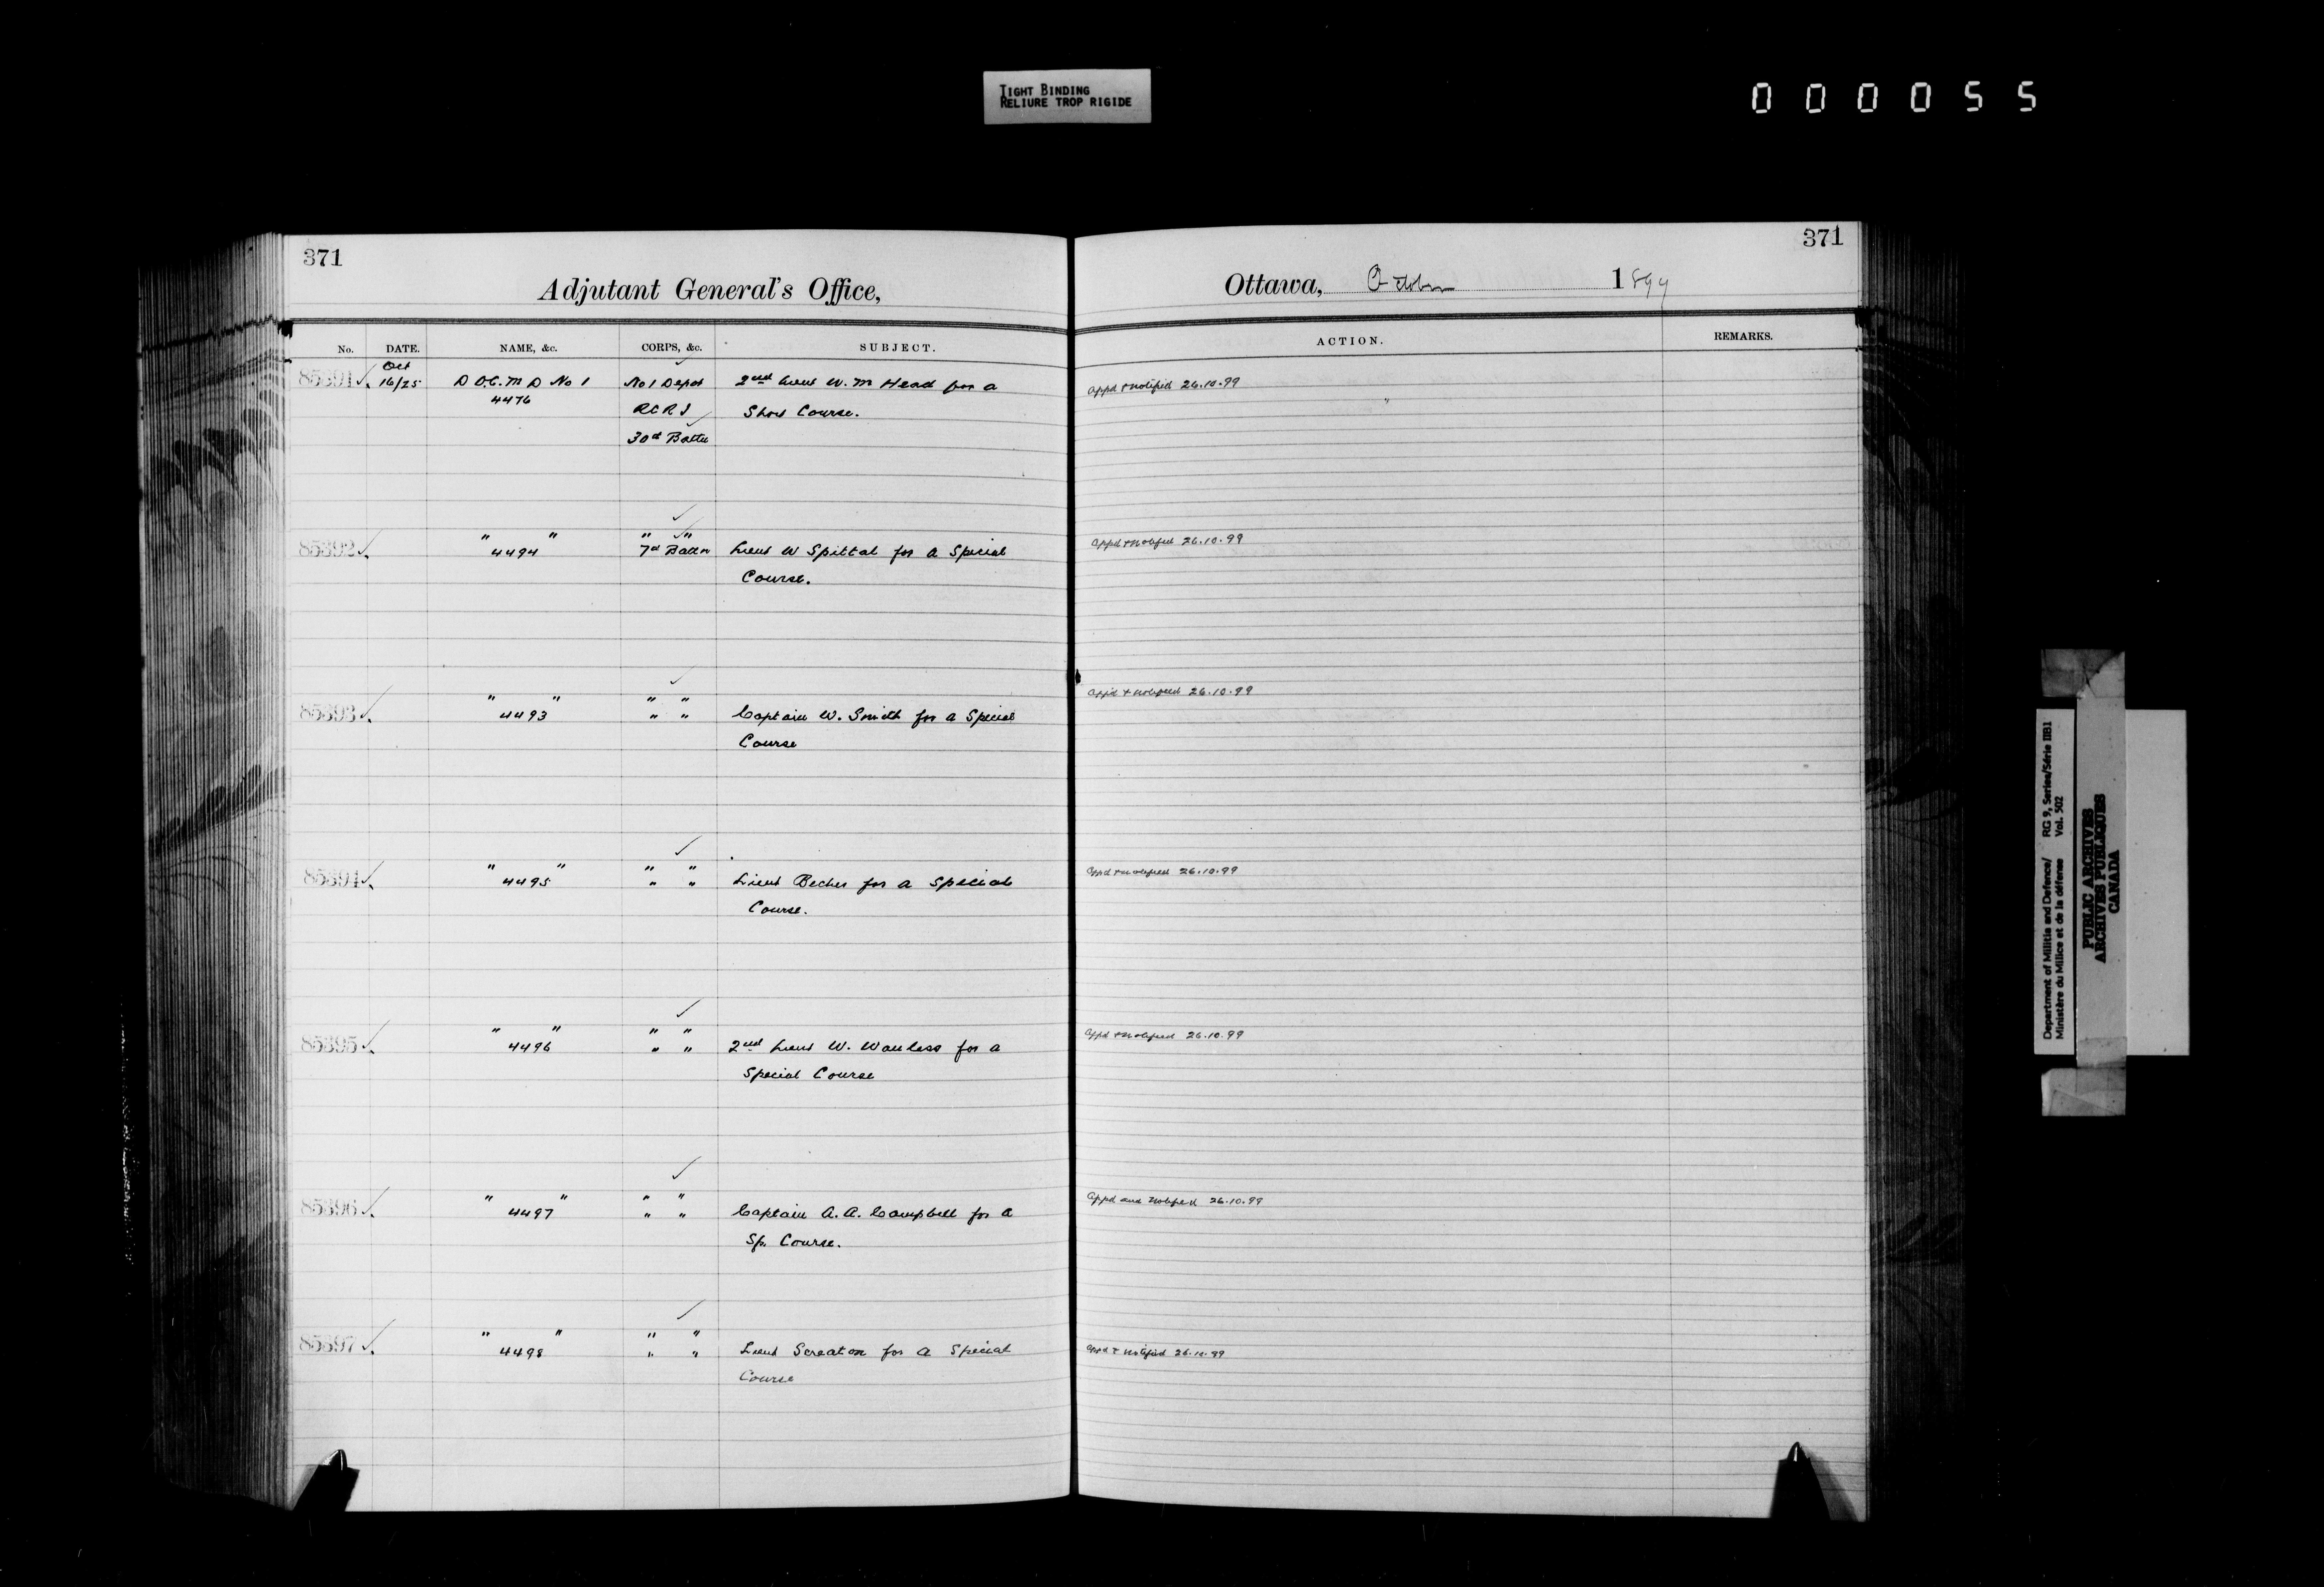 TIGHT BINDING
RELIURE TROP RIGIDE
000055
371
Adjutant General's Office,
No. DATE. NAME, &c. CORPS, &c. SUBJECT.
Oct
85391 16/25 D O.C. M D No 1 No 1 Depot 2nd Lieut W. M Head for a
4476 RCRI Short Course.
30th Battn
" " " "
85392 4494 7th Battn Lieut W Spittal for a Special
Course.
" " " "
85393 4493 " " Captain W. Smith for a Special
Course
" " " "
85394 4495 " " Lieut Becher for a Special
Course.
" " " "
85395 4496 " " 2nd Lieut W. Wanless for a
Special Course
" " " "
85396 4497 " " Captain A. A. Campbell for a
Sp. Course.
" " " "
85397 4498 " " Lieut Screaton for a Special
Course
371
Ottawa, October 1899
ACTION. REMARKS.
Appd & notified 26.10.99
"
Appd & notified 26.10.99
Appd & notified 26.10.99
Appd & notified 26.10.99
Appd & notified 26.10.99
Appd and notified 26.10.99
Appd & notified 26.10.99
Department of Militia and Defence/ RG 9, Series/Série IIB1
Ministère du Milice et de la défense Vol. 502
PUBLIC ARCHIVES
ARCHIVES PUBLIQUES
CANADA